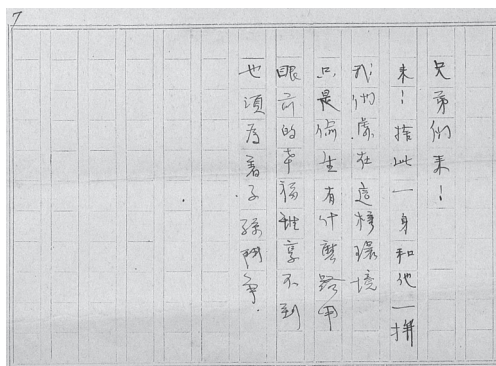 7
兄弟們来！
来！捨此一身和他一拼
我們處在這樣環境
只是偷生有什麼路用
眼前的幸福雖享不到
也須為着子孫鬥争．